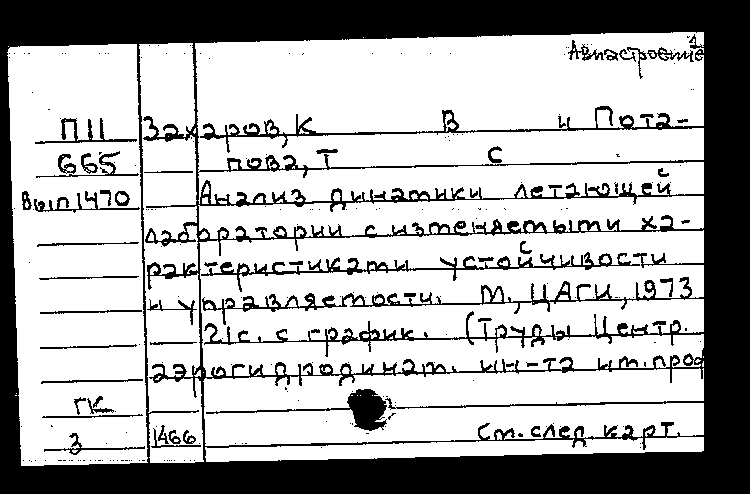 1
Авиастроение
П11 Захаров, К В и Пота-
665 пова, Т С
Вып.1470 Анализ динамики летающей
лаборатории с изменяемыми ха-
рактеристиками устойчивости
и управляемости. М., ЦАГИ, 1973
21с. с график. (Труды Центр.
аэрогидродинам. ин-та им. проф
ГК
3 1466 См. след. карт.